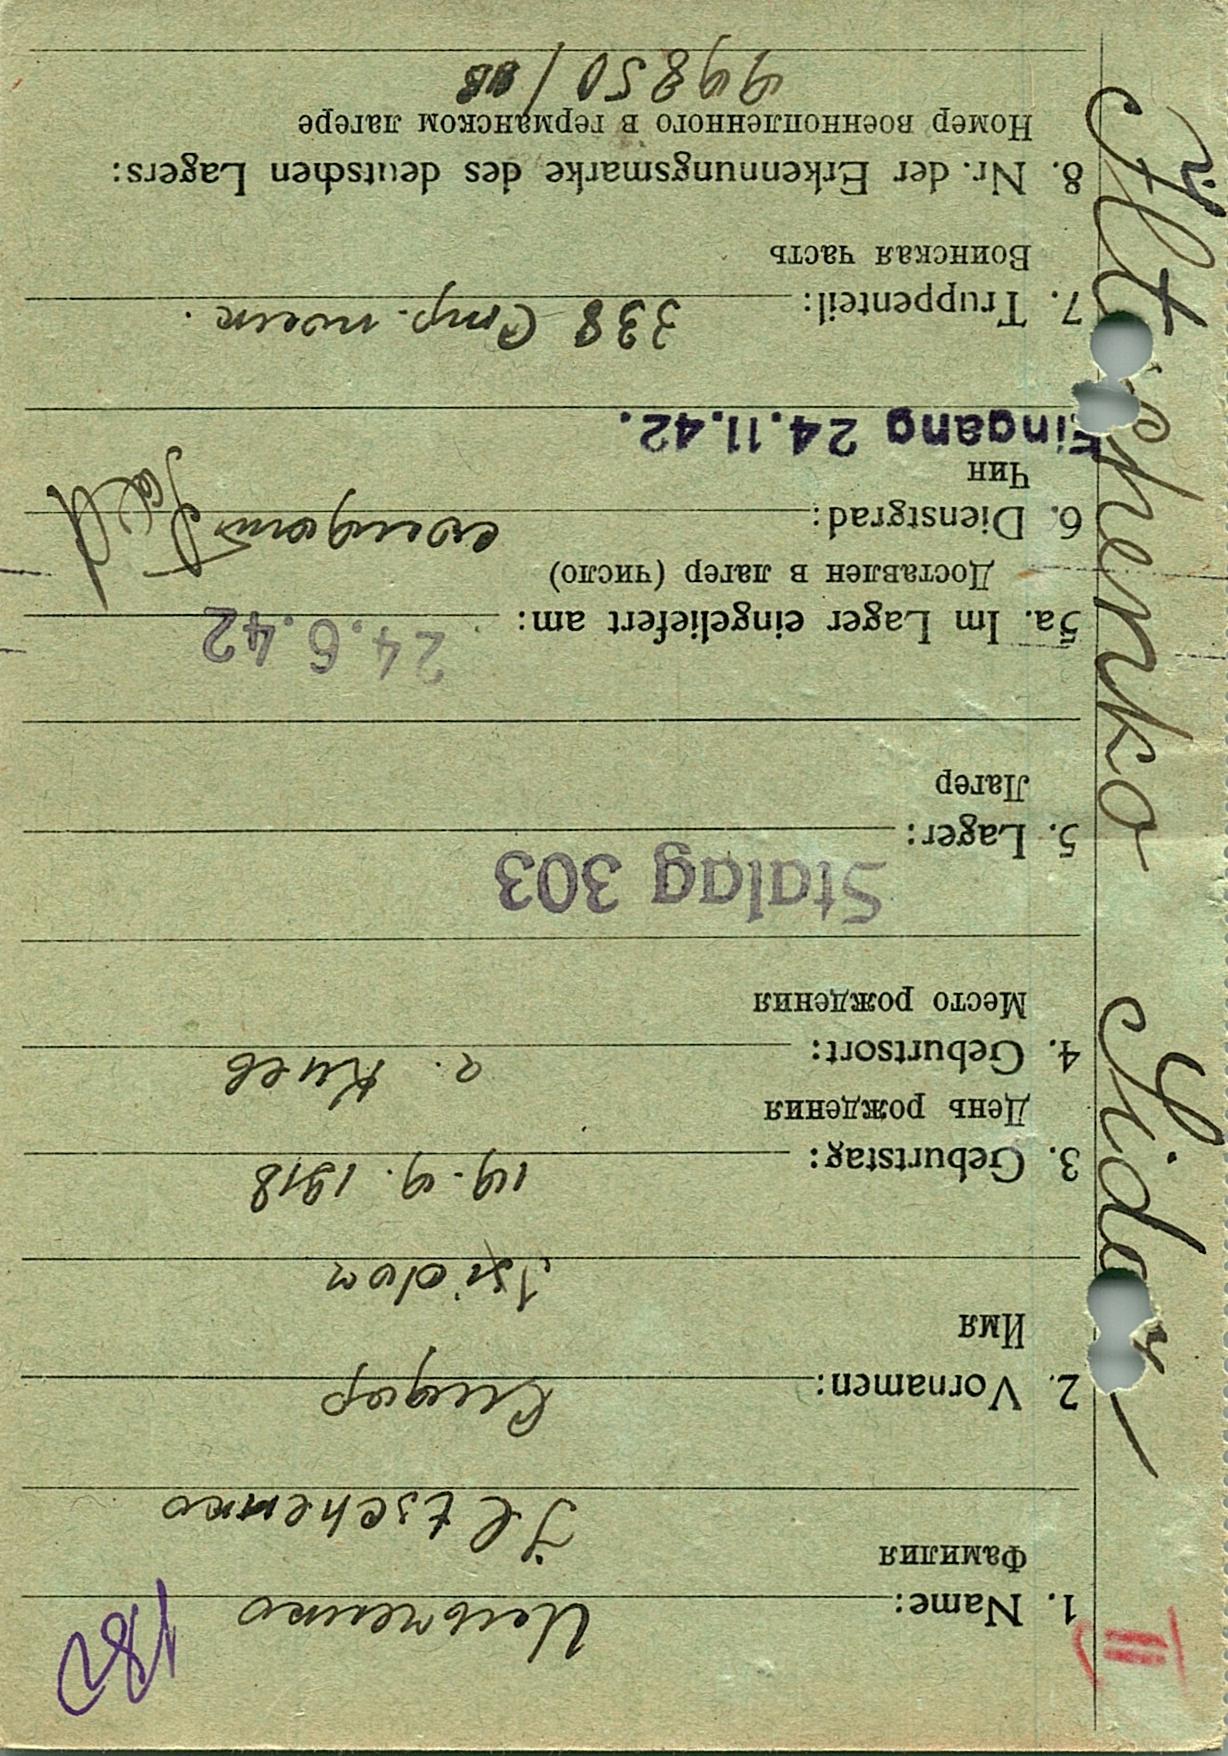 Iltschenko Sidor
III
1. Name: Ильченко
Фамилия
Iltschenko
2. Vornamen: Сидор
Имя
Isidor
3. Geburtstag: 14. 4. 1918
День рождения
4. Geburtsort: г. Киев
Место рождения
Stalag 303
5. Lager:
Лагер
5a. Im Lager eingeliefert am: 24.6.42
Доставлен в лагер (число)
6. Dienstgrad: солдат Sold
Чин
Eingang 24.11.42.
7. Truppenteil: 338 Стр. полк.
Воинская часть
8. Nr. der Erkennungsmarke des deutschen Lagers:
Номер военнопленного в германском лагере
44850 /